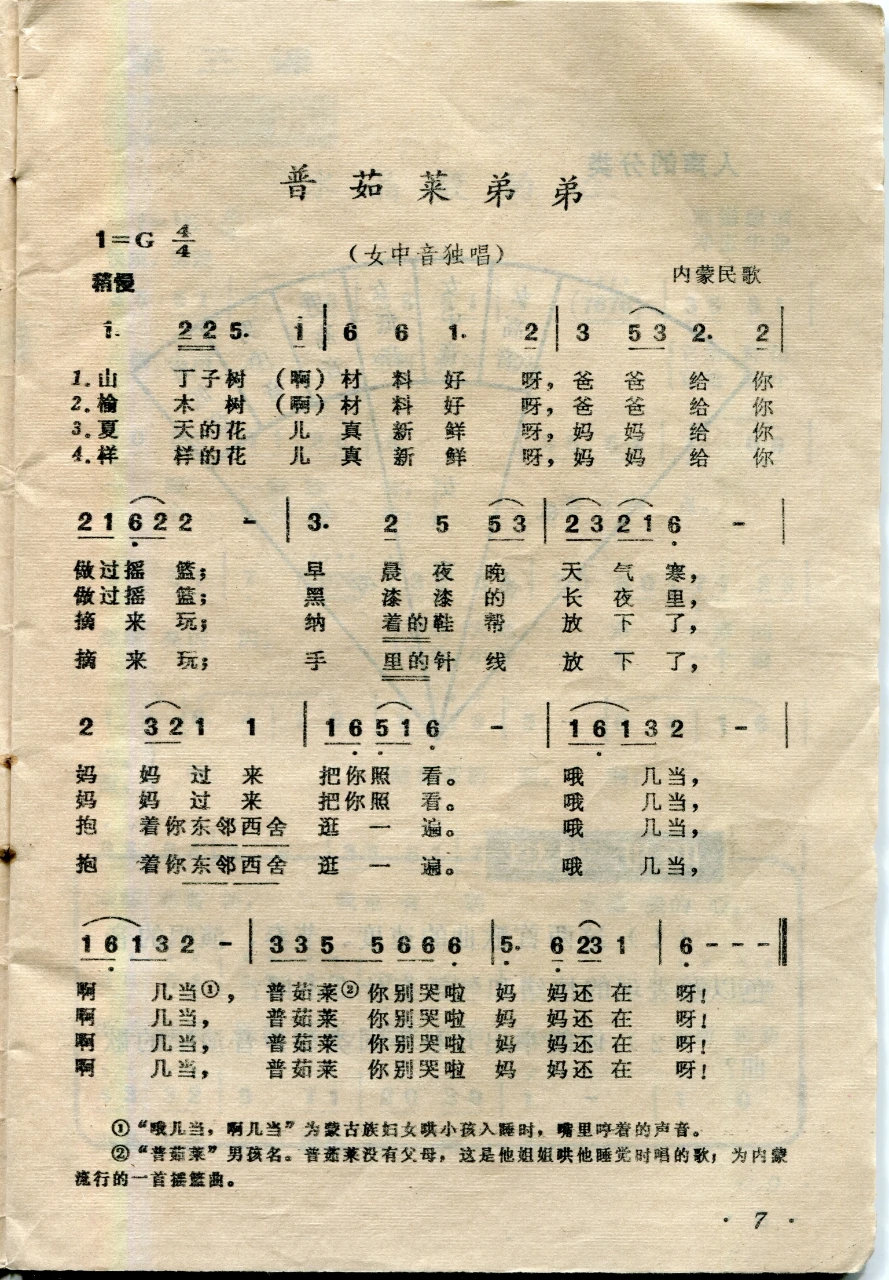 普茹莱弟弟
1=G 4/4
(女中音独唱)
稍慢
内蒙民歌
1. 2 2 5. i | 6 6 1. 2 | 3 5 3 2. 2 |
1.山 丁子树 (啊) 材 料 好 呀, 爸 爸 给 你
2.榆 木 树 (啊) 材 料 好 呀, 爸 爸 给 你
3.夏 天的花 儿 真 新 鲜 呀, 妈 妈 给 你
4.样 样的花 儿 真 新 鲜 呀, 妈 妈 给 你
2 1 6 2 2 - | 3. 2 5 5 3 | 2 3 2 1 6 - |
做过摇 篮; 早 晨 夜 晚 天 气 寒,
做过摇 篮; 黑 漆 漆 的 长 夜 里,
摘 来 玩; 纳 着的鞋 帮 放 下 了,
摘 来 玩; 手 里的针 线 放 下 了,
2 3 2 1 1 | 1 6 5 1 6 - | 1 6 1 3 2 - |
妈 妈 过 来 把你照 看。 哦 几当,
妈 妈 过 来 把你照 看。 哦 几当,
抱 着你东邻西舍 逛 一 遍。 哦 几当,
抱 着你东邻西舍 逛 一 遍。 哦 几当,
1 6 1 3 2 - | 3 3 5 5 6 6 6 6 | 5. 6 23 1 | 6 - - - ‖
啊 几当①, 普茹莱② 你别哭啦 妈 妈还在 呀!
啊 几当, 普茹莱 你别哭啦 妈 妈还在 呀!
啊 几当, 普茹莱 你别哭啦 妈 妈还在 呀!
啊 几当, 普茹莱 你别哭啦 妈 妈还在 呀!
①“哦几当,啊几当”为蒙古族妇女哄小孩入睡时,嘴里哼着的声音。
②“普茹莱”男孩名。普茹莱没有父母,这是他姐姐哄他睡觉时唱的歌;为内蒙
流行的一首摇篮曲。
· 7 ·